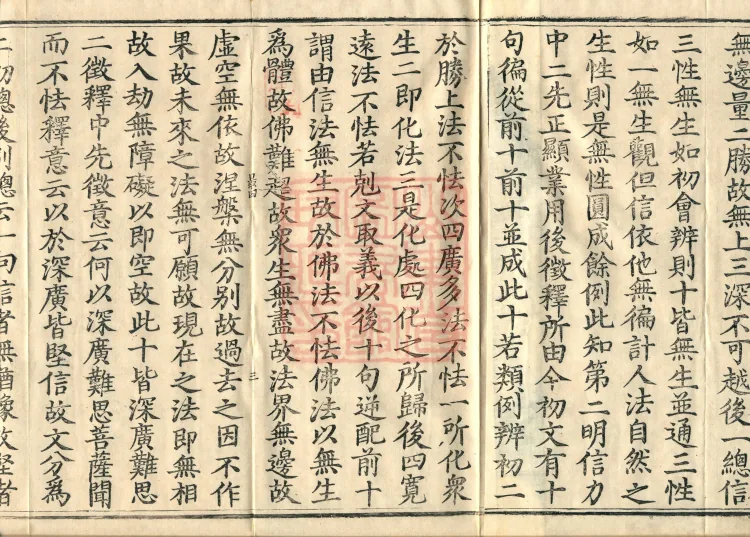 無邊量二勝故無上三深不可越後一總信
三性無生如初會辨則十皆無生並通三性
如一無生觀但信依他無徧計人法自然之
生性則是無性圓成餘例此知第二明信力
中二先正顯業用後徵釋所由今初文有十
句徧從前十前十並成此十若類例辨初二
於勝上法不怯次四廣多法不怯一所化衆
生二即化法三是化處四化之所歸後四寬
遠法不怯若剋文取義以後十句逆配前十
謂由信法無生故於佛法不怯佛法以無生
爲體故佛難超故衆生無盡故法界無邊故
虛空無依故涅槃無分別故過去之因不作
果故未來之法無可願故現在之法即無相
故入劫無障礙以即空故此十皆深廣難思
二徵釋中先徵意云何以深廣難思菩薩聞
而不怯釋意云以於深廣皆堅信故文分爲
二初總後別總云一切信者無猶豫故堅者
三